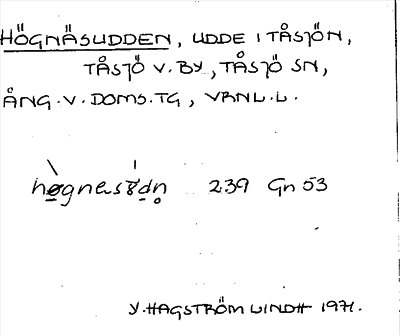 HÖGNÄSUDDEN, UDDE I TÅSJÖN,
TÅSJÖ V. BY, TÅSJÖ SN,
ÅNG. V. DOMS. TG, VBNL. L.
239 Gn 53
Y. HAGSTRÖM LINDH 1971.